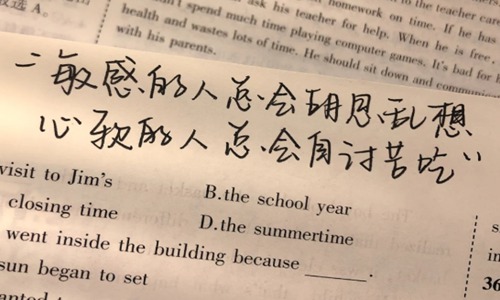 选 A。
't spend much time playing computer games. It's bad for
ask his teacher for help. When he is free,
homework on time. If he has
to the teacher care
health and wastes lots of time. He should sit down and communic
with his parents.
“敏感的人总会胡思乱想
心软的人总会自讨苦吃”
visit to Jim's
B.the school year
closing time
D.the summertime
went inside the building because ______.
sun began to set
wanted t
s
in
36